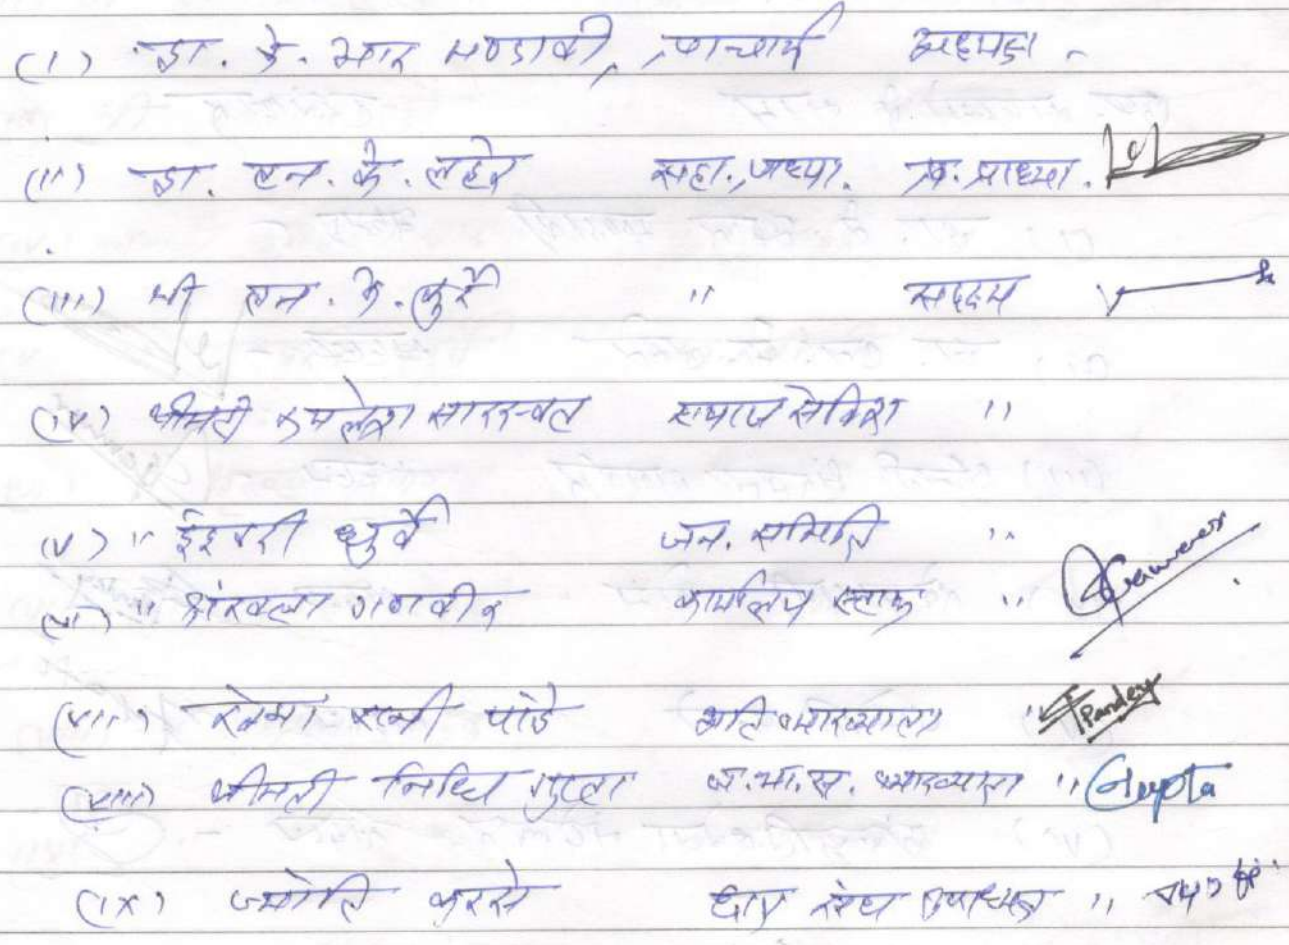 (i) डा. के. आर मण्डावी, प्राचार्य अध्यक्ष
(ii) डा. एन. के. लहरे सहा. प्राध्या. प्र. प्राध्या.
(iii) श्री एन. के. कुर्रे " सदस्य
(iv) श्रीमती कमलेश सारस्वत समाज सेविका "
(v) " ईश्वरी धुर्वे जन. समिति "
(vi) " गणवीर कार्यालय स्टाफ "
(vii) रश्मी पांडे अति व्याख्याता " Pandey
(viii) श्रीमती निधि गुप्ता ज.भा.स. व्याख्याता " Gupta
(ix) ज्योति कुररे छात्र संघ उपाध्यक्ष "